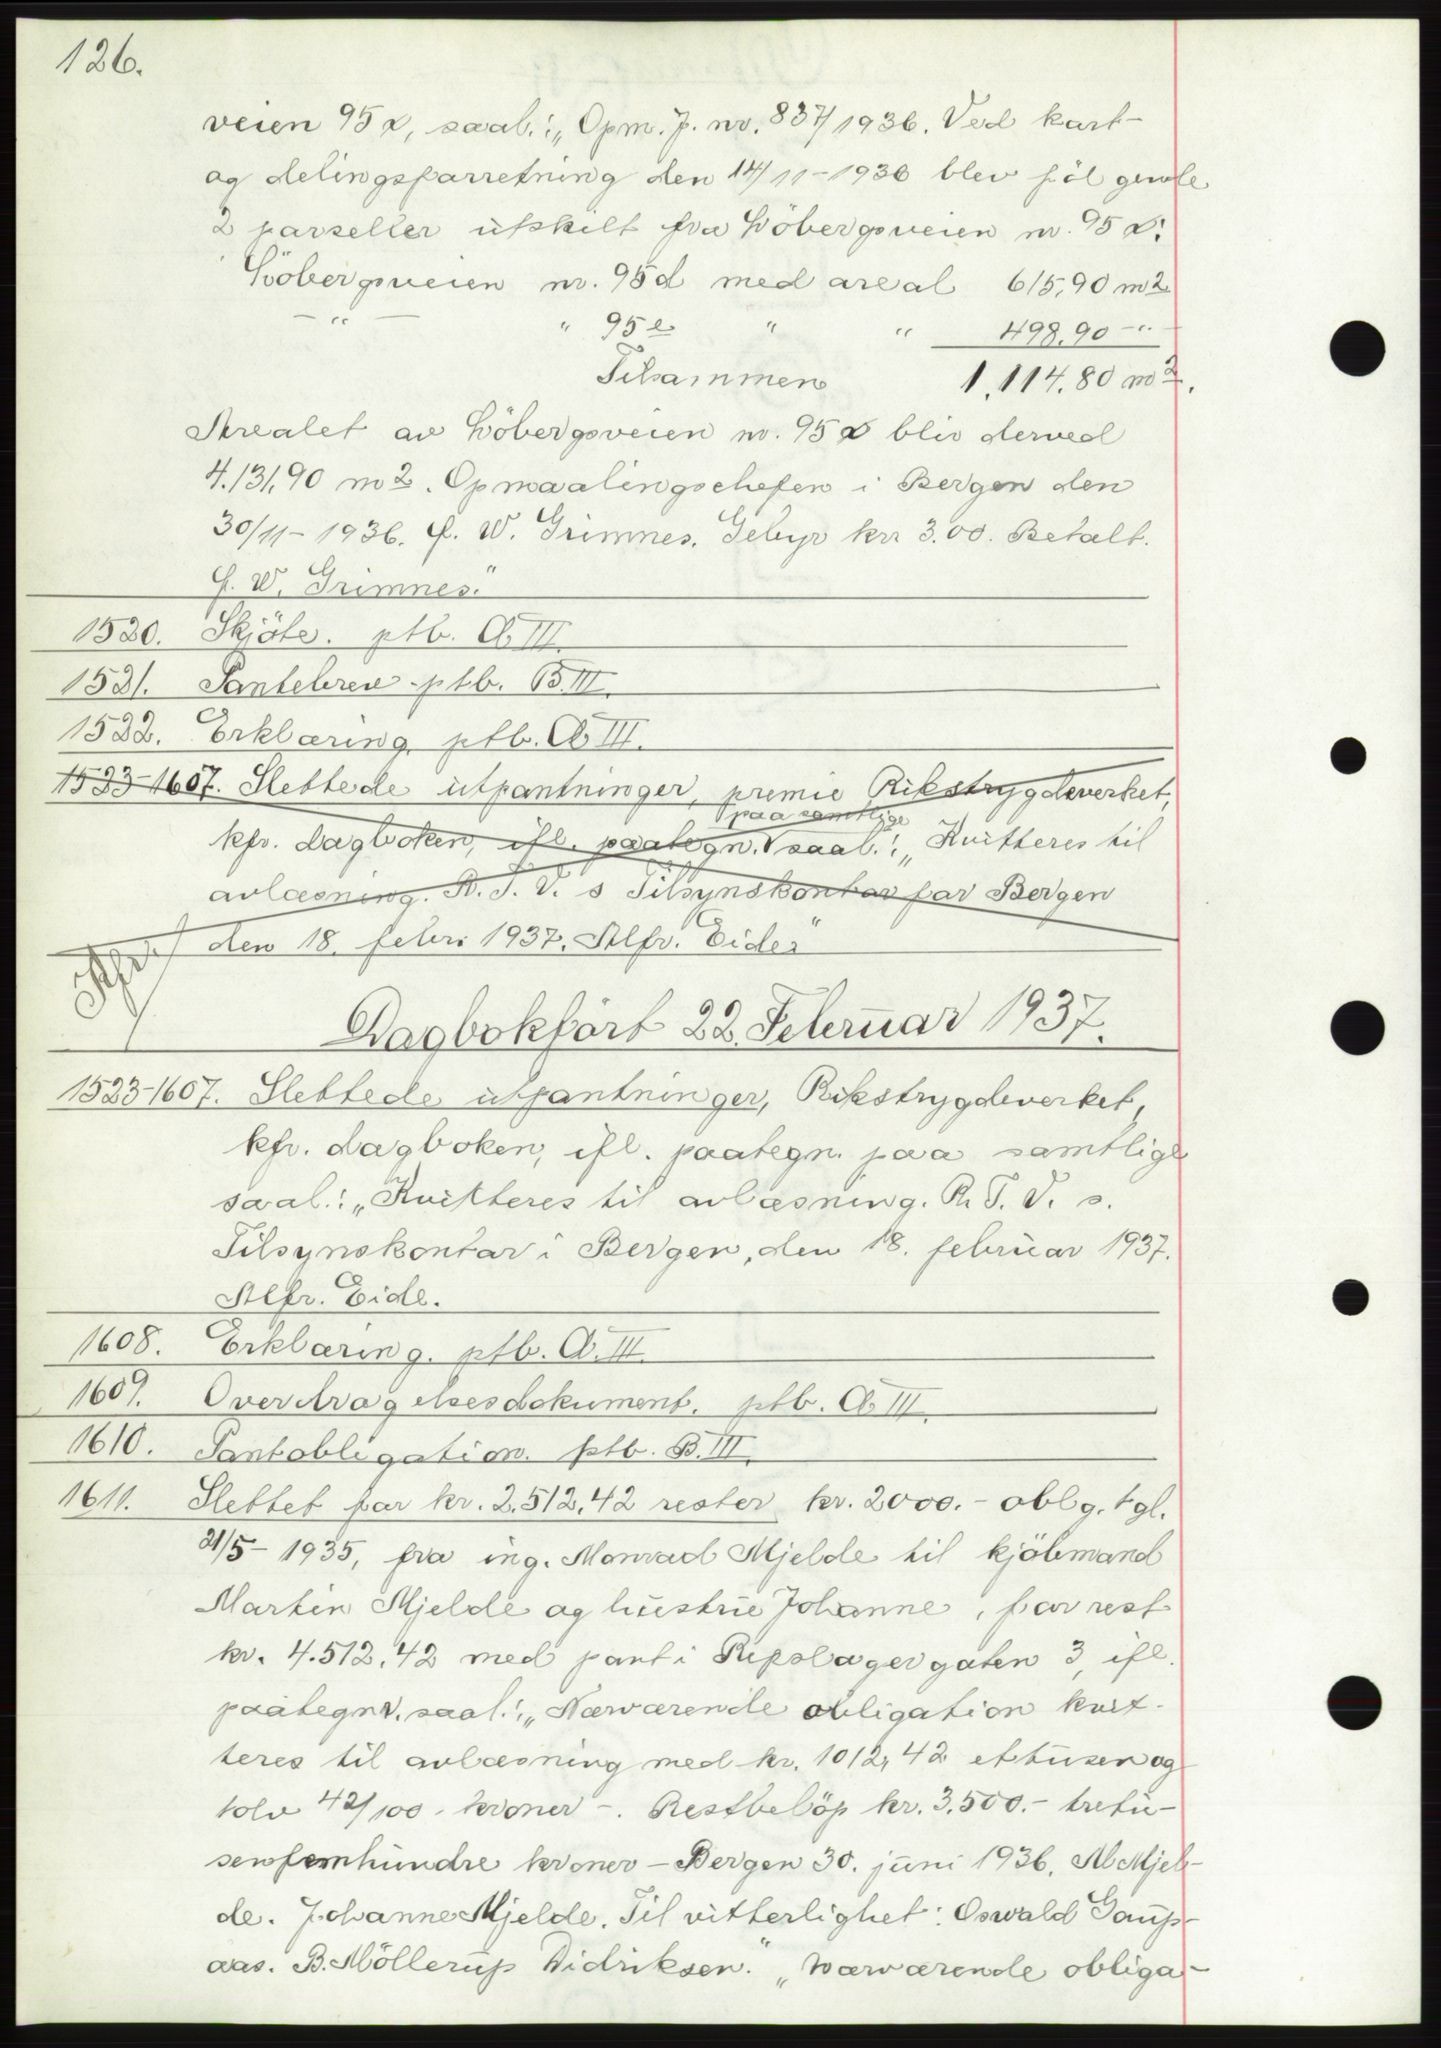 126.
veien 95 a, saal.: „Opm. J. nr. 837/1936. Ved kart-
og delingsforretning den 14/11-1936 blev følgende
2 parseller utskilt fra Löbergsveien nr. 95 a:
Löbergsveien nr. 95d med areal 615,90 m2
— " — " 95e " " 498.90 — "
Tilsammen 1.114.80 m2.
Arealet av Löbergsveien nr. 95 a blir derved
4.131,90 m2. Opmaalingschefen i Bergen den
30/11-1936. f. W. Grimnes. Gebyr kr 3.00. Betalt.
f. W. Grimnes."
1520. Skjöte. ptb. A III.
1521. Pantebrev - ptb. B.III.
1522. Erklæring ptb. A III.
1523-1607. Slettede utpantninger, premie Rikstrygdeverket,
kfr. dagboken, ifl. paategn. paa samtlige saal.: „Kvitteres til
avlæsning. R. T. V. s Tilsynskontor for Bergen
den 18. febr. 1937. Alfr. Eide"
Dagbokført 22. Februar 1937.
1523-1607. Slettede utpantninger, Rikstrygdeverket,
kfr. dagboken, ifl. paategn. paa samtlige
saal.: „Kvitteres til avlæsning. R. T. V. s.
Tilsynskontor i Bergen, den 18. februar 1937.
Alfr. Eide.
1608. Erklæring. ptb. A. III.
1609. Overdragelsesdokument. ptb. A III.
1610. Pantobligation. ptb. B. III.
1611. Slettet for kr. 2.512,42 rester kr. 2000.- oblg. tgl.
21/5-1935, fra ing. Monrad Mjelde til kjöbmand
Martin Mjelde og hustru Johanne, for rest
kr. 4.512,42 med pant i Repslagergaten 3, ifl.
paategn. saal.: „Nærværende obligation kvit-
teres til avlæsning med kr. 1012,42 ettusen og
tolv 42/100 kroner -. Restbelöp kr. 3.500.- tretu-
senfemhundre kroner - Bergen 30. juni 1936. M Mjel-
de. Johanne Mjelde. Til vitterlighet: Oswald Gaup-
aas. B. Möllerup Didriksen." „Nærværende obliga-